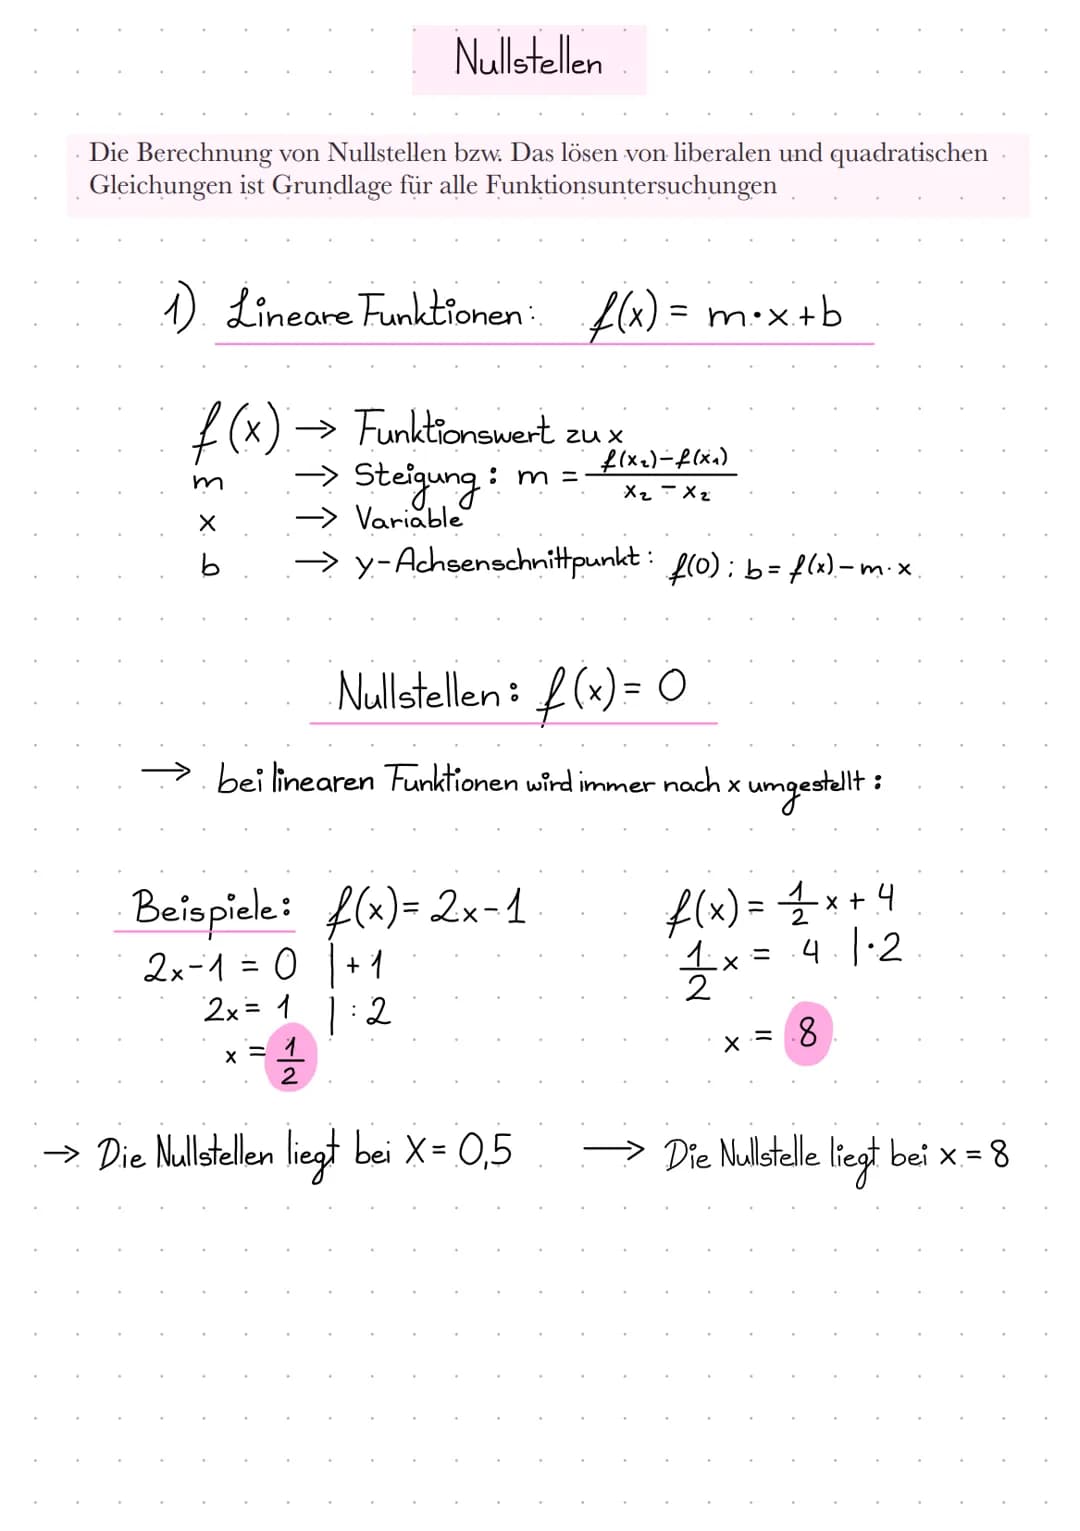 Nullstellen
Die Berechnung von Nullstellen bzw. Das lösen von liberalen und quadratischen
Gleichungen ist Grundlage für alle Funktionsuntersuchungen
1) Lineare Funktionen: f(x) = m·x+b
f(x) → Funktionswert zu x
m → Steigung: m = f(x₂)-f(x₁) / x₂ - x₂
x → Variable
b → y-Achsenschnittpunkt: f(0); b = f(x) - m·x
Nullstellen: f(x) = 0
→ bei linearen Funktionen wird immer nach x umgestellt:
Beispiele: f(x) = 2x-1
2x-1 = 0 |+1
2x = 1 |:2
x = 1/2
→ Die Nullstellen liegt bei X = 0,5
f(x) = 1/2 x + 4
1/2 x = 4 |·2
x = 8
→ Die Nullstelle liegt bei x = 8